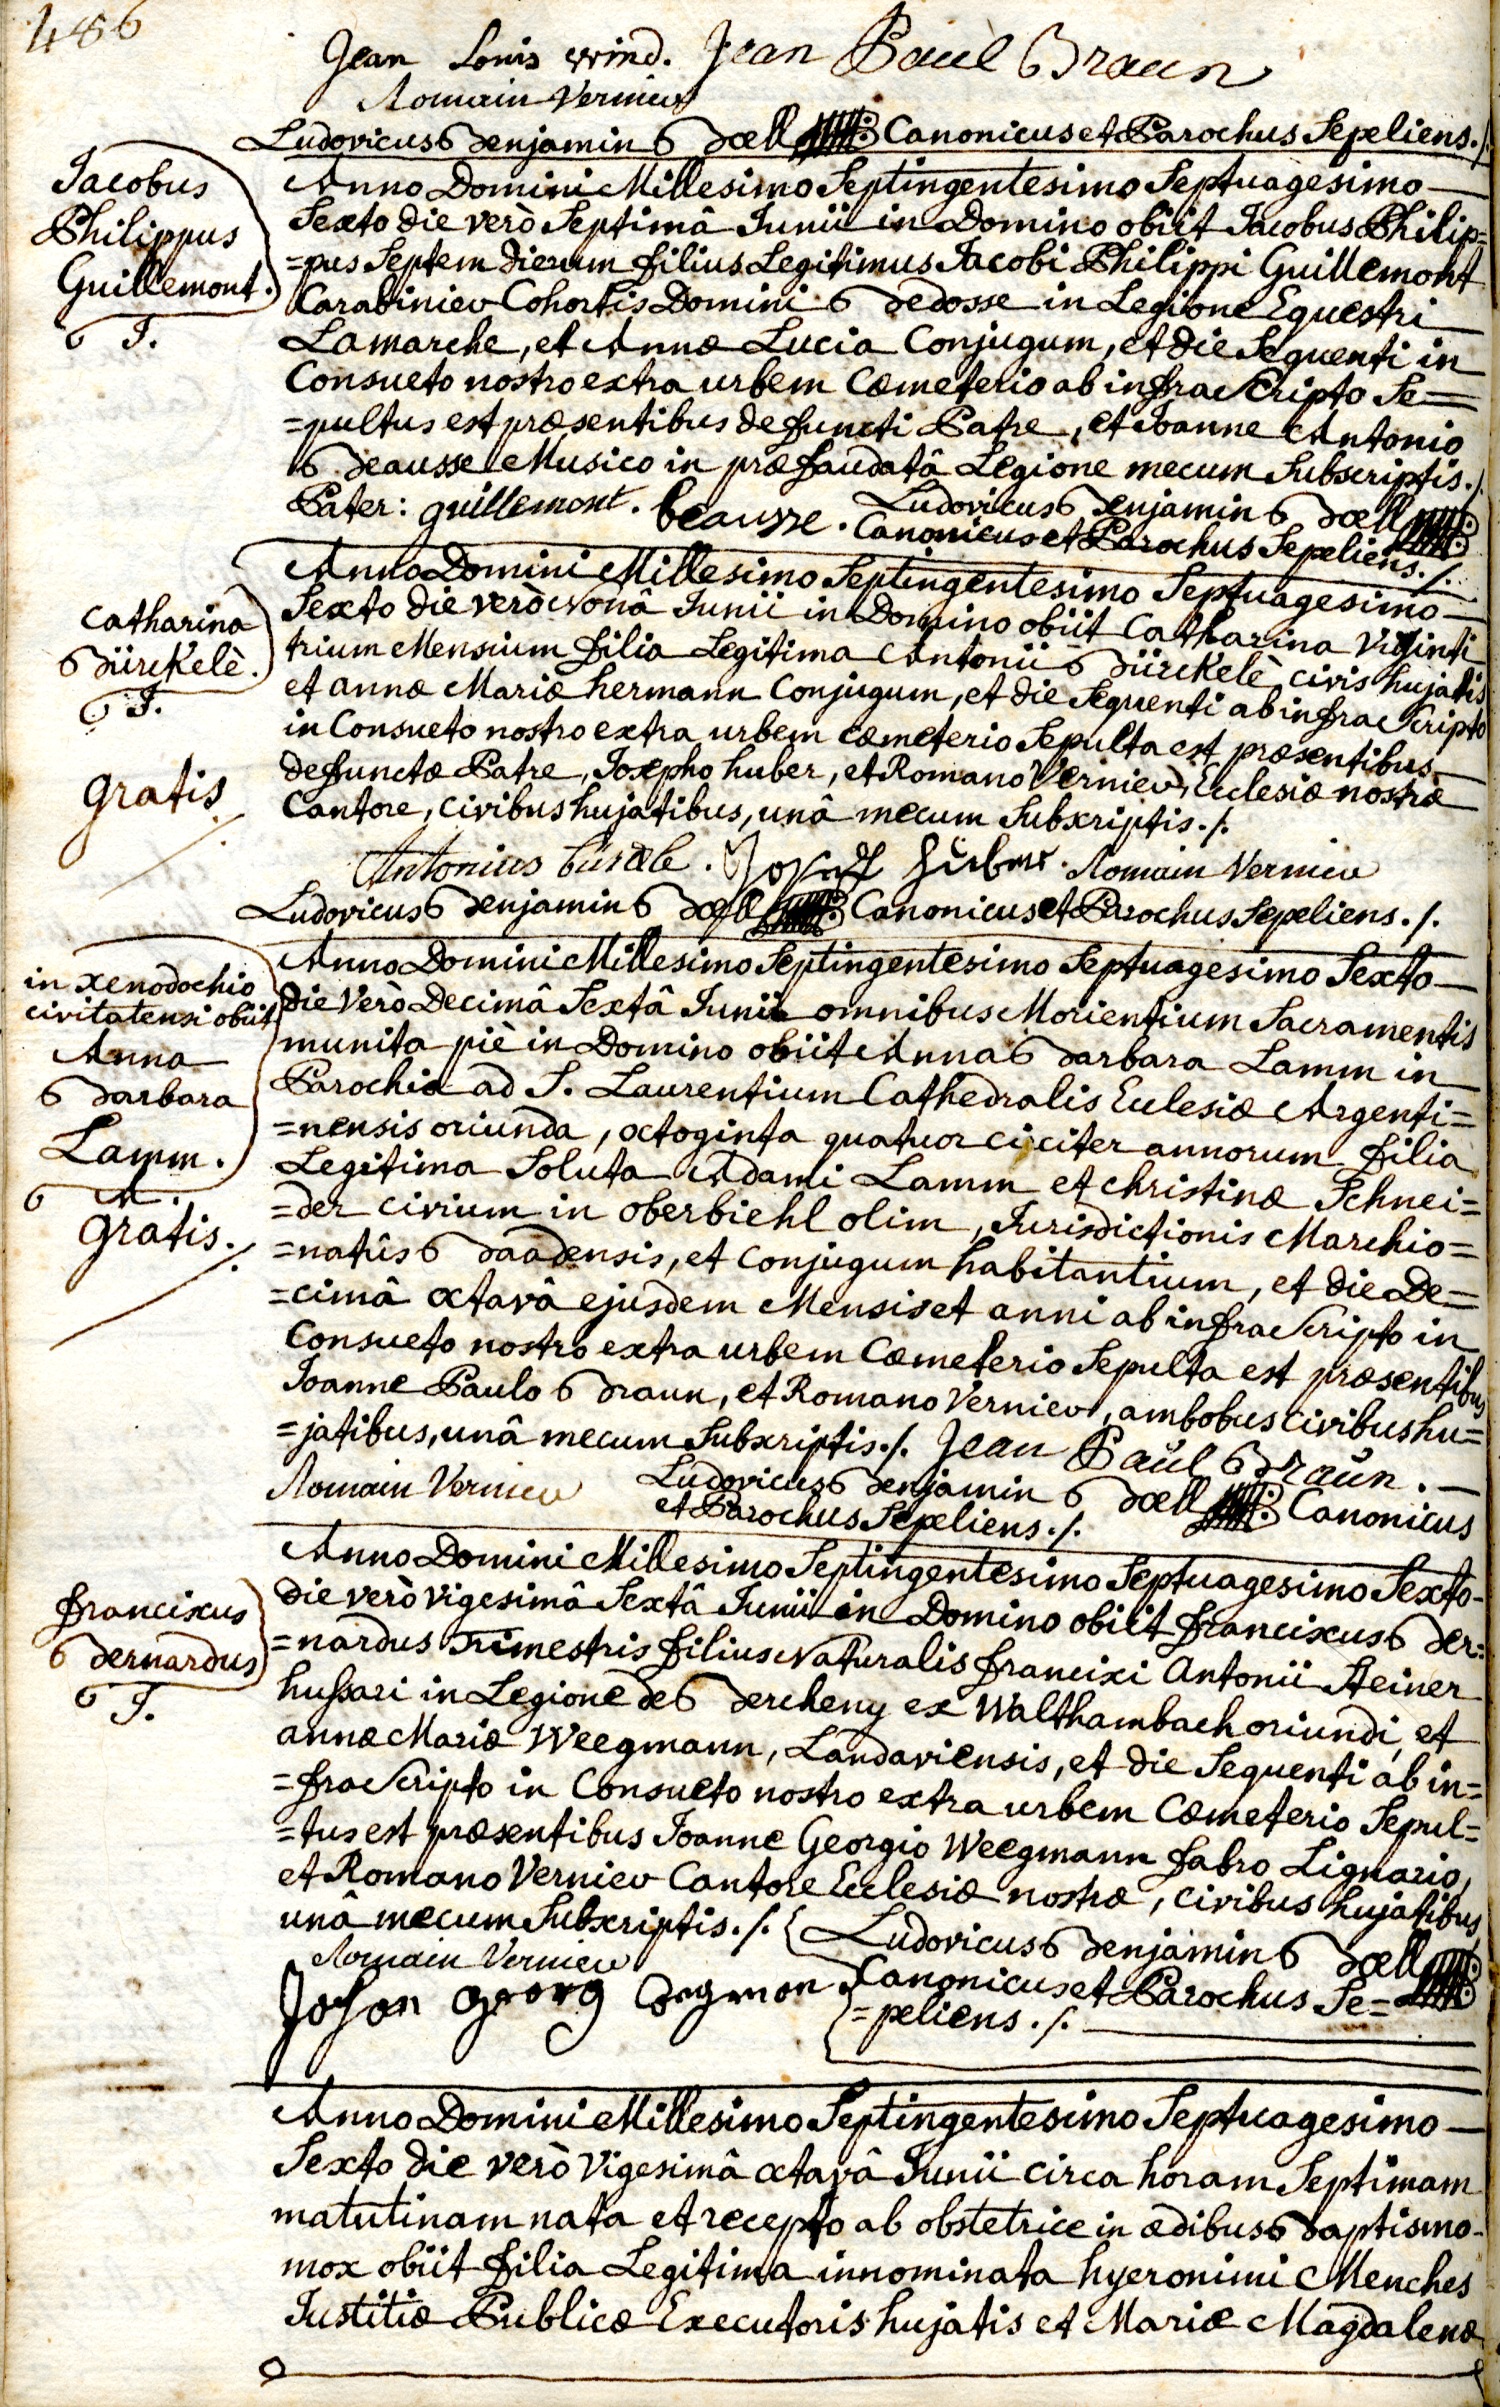 486
Jean Louis wind. Jean Paul Braun
Romain Vernier
Ludovicus Benjamin Boell Canonicus et Parochus Sepeliens ./.
Jacobus
Philippus
Guillemont.
J.
Anno Domini Millesimo Septingentesimo Septuagesimo
Sexto die verò Septimâ Junii in Domino obiit Jacobus Philip=
=pus Septem dierum filius Legitimus Jacobi Philippi Guillemont
Carabinier Cohortis Domini Bedosse in Legione Equestri
Lamarche, et Annæ Lucia Conjugum, et die Sequenti in
Consueto nostro extra urbem Cœmeterio ab infra Scripto Se=
=pultus est præsentibus defuncti Patre, et Joanne Antonio
Beausse Musico in præfaudatâ Legione mecum Subscriptis ./.
Pater: guillemont. beausse. Ludovicus Benjamin Boell
Canonicus et Parochus Sepeliens ./.
Catharina
Bürckelè.
J.
gratis.
Anno Domini Millesimo Septingentesimo Septuagesimo
Sexto die verò Nonâ Junii in Domino obiit Catharina Viginti
trium Mensium filia Legitima Antonii Bürckelè civis hujatis
et annæ Mariæ hermann Conjugum, et die Sequenti ab infra Scripto
in Consueto nostro extra urbem cœmeterio Sepulta est præsentibus
defunctæ Patre, Josepho huber, et Romano Vernier, Ecclesiæ nostræ
Cantore, civibus hujatibus, unâ mecum Subscriptis ./.
Antonius bürcle. Joseph Huber. Romain Vernier
Ludovicus Benjamin Boell Canonicus et Parochus Sepeliens ./.
in xenodochio
civitatensi obiit
Anna
Barbara
Lamm.
A.
gratis.
Anno Domini Millesimo Septingentesimo Septuagesimo Sexto
die Verò Decimâ Sextâ Junii omnibus Morientium Sacramentis
munita piè in Domino obiit Anna Barbara Lamm in
Parochia ad S. Laurentium Cathedralis Ecclesiæ Argenti=
=nensis oriunda, octoginta quatuor circiter annorum filia
Legitima Soluta Adami Lamm et christinæ Schnei=
=der civium in oberbiehl olim, Jurisdictionis Marchio=
=natûs Baadensis, et conjugum habitantium, et die De=
=cimâ octavâ ejusdem Mensis et anni ab infra Scripto in
Consueto nostro extra urbem Cœmeterio Sepulta est præsentibus
Joanne Paulo Braun, et Romano Vernier, ambobus civibus hu=
=jatibus, unâ mecum Subscriptis ./. Jean Paül Braün.
Romain Vernier Ludovicus Benjamin Boell Canonicus
et Parochus Sepeliens ./.
franciscus
Bernardus
J.
Anno Domini Millesimo Septingentesimo Septuagesimo Sexto
die verò vigesimâ Sextâ Junii in Domino obiit franciscus Ber=
=nardus Trimestris filius Naturalis francisci Antonii Steiner
hussari in Legione de Bercheny ex Walthambach oriundi, et
annæ Mariæ Weegmann, Landaviensis, et die Sequenti ab in=
=fra Scripto in Consueto nostro extra urbem Cœmeterio Sepul=
=tus est præsentibus Joanne Georgio Weegmann fabro Lignario,
et Romano Vernier Cantore Ecclesiæ nostræ, civibus hujatibus,
unâ mecum Subscriptis ./. Ludovicus Benjamin Boell
Romain Vernier
Johan Georg Canonicus et Parochus Se=
=peliens ./.
Anno Domini Millesimo Septingentesimo Septuagesimo
Sexto die verò vigesimâ octavâ Junii circa horam Septimam
matutinam nata et recepto ab obstetrice in ædibus Baptismo
mox obiit filia Legitima innominata hyeronimi Menches
Justitiæ Publicæ Executoris hujatis et Mariæ Magdalenæ